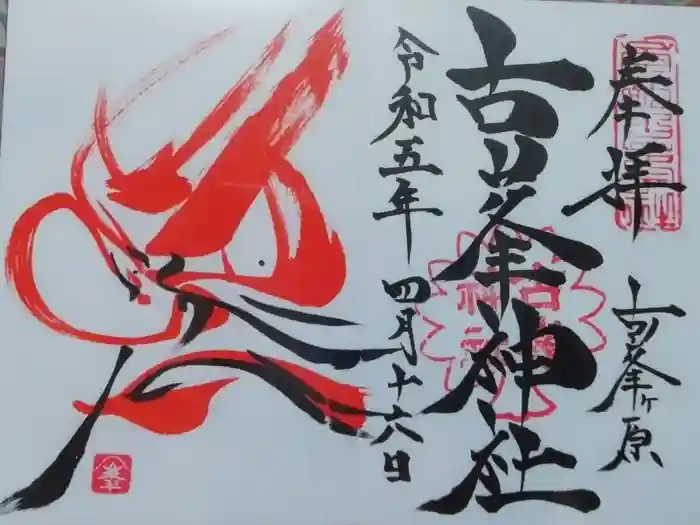 奉拝
古峯ヶ原
古峯神社
令和五年四月十六日